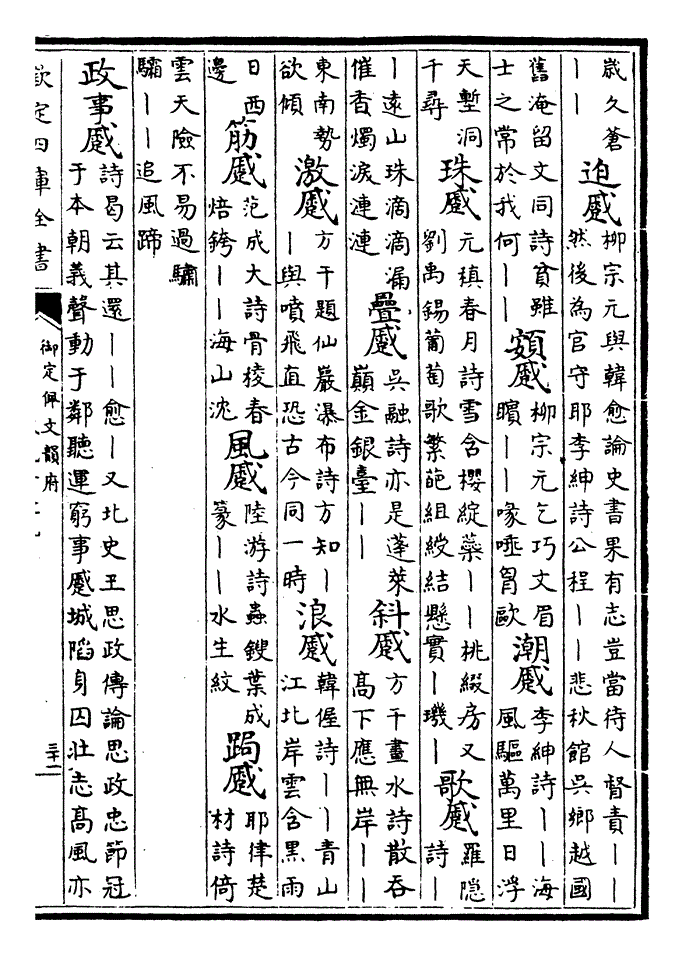 歲久蒼
｜｜
迫蹙
柳宗元與韓愈論史書果有志豈當待人督責｜｜
然後為官守耶李紳詩公程｜｜悲秋館吳鄉越國
舊淹留文同詩貧雖
士之常於我何｜｜
頞蹙
柳宗元乞巧文眉
矉｜｜喙唾胷歐
潮蹙
李紳詩｜｜海
風驅萬里日浮
天塹洞
千尋
珠蹙
元稹春月詩雪含櫻綻蘂｜｜桃綴房又
劉禹錫葡萄歌繁葩組綬結懸實｜璣｜
歌蹙
羅隱
詩｜
｜遠山珠滴滴漏
催香燭淚連連
疊蹙
吳融詩亦是蓬萊
巔金銀臺｜｜
斜蹙
方干畫水詩散吞
高下應無岸｜｜
東南勢
欲傾
激蹙
方干題仙巖瀑布詩方知｜
｜與噴飛直恐古今同一時
浪蹙
韓偓詩｜｜青山
江北岸雲含黑雨
日西
邊
筋蹙
范成大詩骨稜春
焙銙｜｜海山沈
風蹙
陸游詩蟲鎪葉成
篆｜｜水生紋
跼蹙
耶律楚
材詩倚
雲天險不易過驌
驦｜｜追風蹄
政事蹙
詩曷云其還｜｜愈｜又北史王思政傳論思政忠節冠
于本朝義聲動于鄰聽運窮事蹙城陷身囚壯志高風亦
欽定四庫全書
御定佩文韻府
三十二